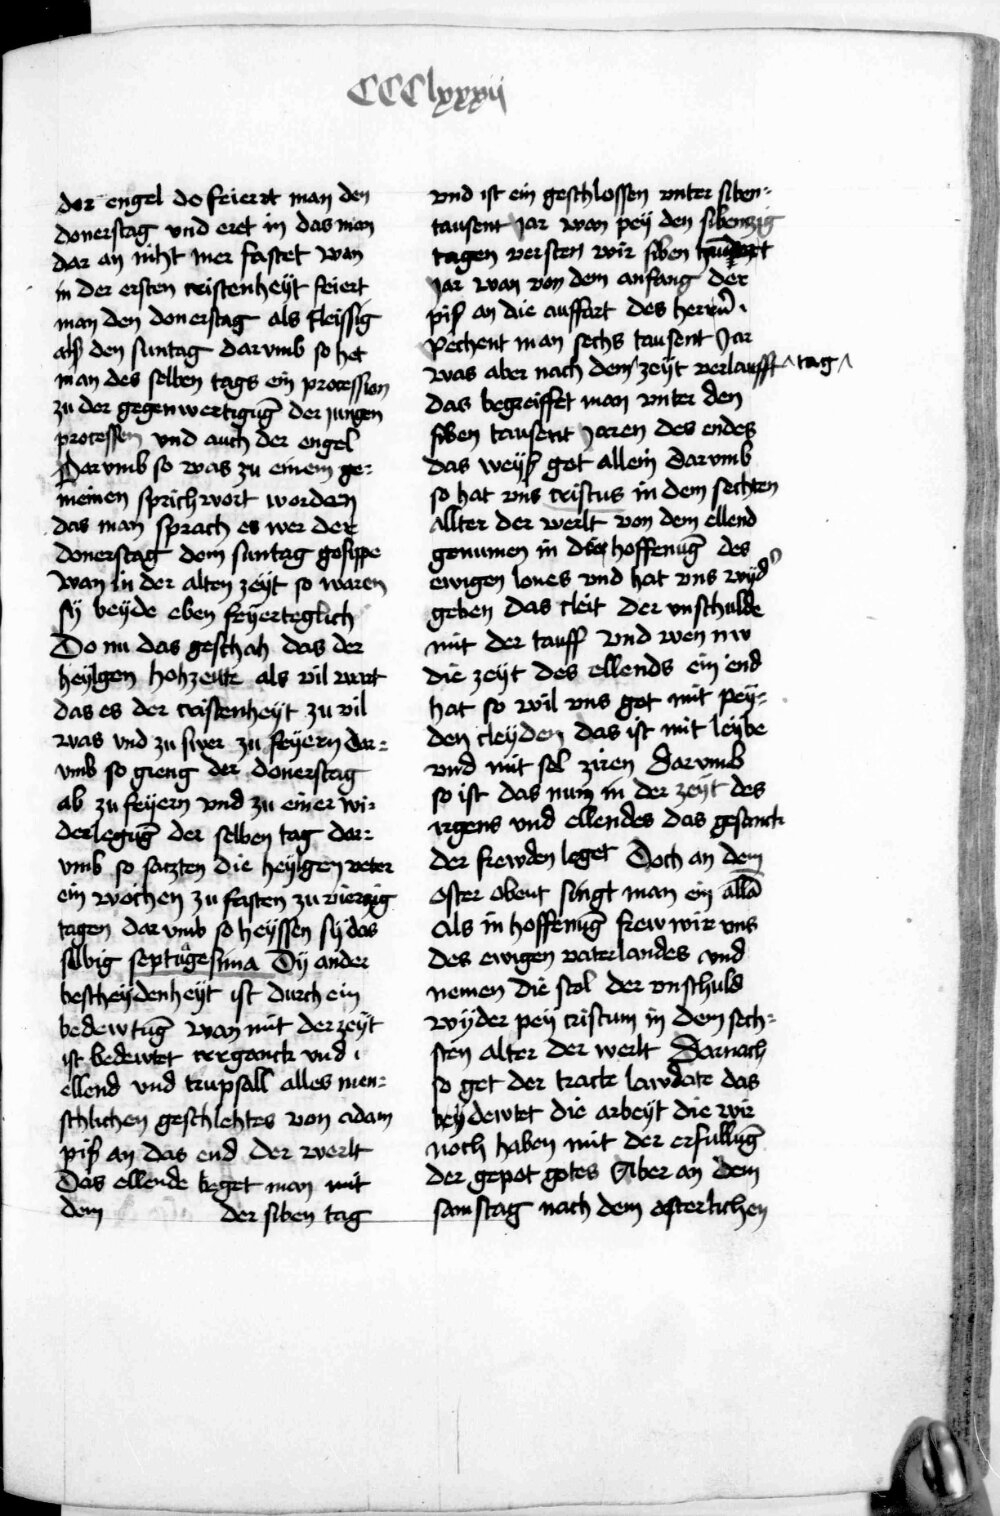 CCClxxxij
der engel do feierrt man den
donerstag vnd eret in das man
dar an niht mer fastet wan
in der ersten cristenheÿt feiert
man den donerstag als fleissig
alß den suntag darvmb so het
man des selben tags ein procession
zu der gegenwertigūg der jungen
processen vnd auch der engel
Darvmb so was zu einem ge-
meinen sprichwort worden
das man sprach es wer der
donerstag dem suntag gesippe
wan in der alten zeÿt so waren
sÿ beÿde eben feÿerteglich
Do nu das geschah das der
heÿlgen hohzeite als vil wart
das es der cristenheÿt zu vil
was vnd zu swer zu feÿern dar-
vmb so gieng der donerstag
ab zu feÿern vnd zu einer wi-
derlegūg der selben tag dar-
vmb so saczten die heÿlgen veter
ein wochen zu fasten zu vierzig
tagen darvmb so heÿssen sÿ das
selbig septuagesima Dÿ ander
bescheÿdenheÿt ist durch ein
bedewtūg wan mit der zeÿt
ist bedewtet irrganck vnd
ellend vnd trupsall alles men-
schlichen geschlehtes von adam
piß an das end der werlt
Das ellende beget man mit
dem der siben tag
vnd ist ein geschlossen vnter siben-
tausent jar wan peÿ den sibenzig
tagen versten wir siben
jar wan von dem anfang der
piß an die auffart des herrn
Rechent man sechs tausent Jar
was aber nach dem zeÿt verlaufft ^ tag ^
das begreiffet man vnter den
siben tausent Jaren des endes
das weÿß got allein darvmb
so hat vns cristus in dem sechten
allter der werlt von dem ellend
genumen in der hoffenūg des
ewigen lones vnd hat vns wÿd'
geben das cleit der vnschulde
mit der tauff vnd wen nw
die zeÿt des ellends ein end
hat so wil vns got mit peÿ-
den cleÿden das ist mit leÿbe
vnd mit sel ziren Darvmb
so ist das nun in der zeÿt des
irgens vnd ellendes das gesanck
der frewden leget Doch an dem
oster obent singt man ein allā
als in hoffenūg frew wir vns
des ewigen vaterlandes vnd
nemen die stol der vnschuld
wÿder peÿ cristum in dem sech-
sten alter der werlt Darnach
so get der tracte lawdate das
beÿdewtet die arbeÿt die wir
noch haben mit der erfullūg
der gepot gotes Aber an dem
samstag nach dem osterlichen